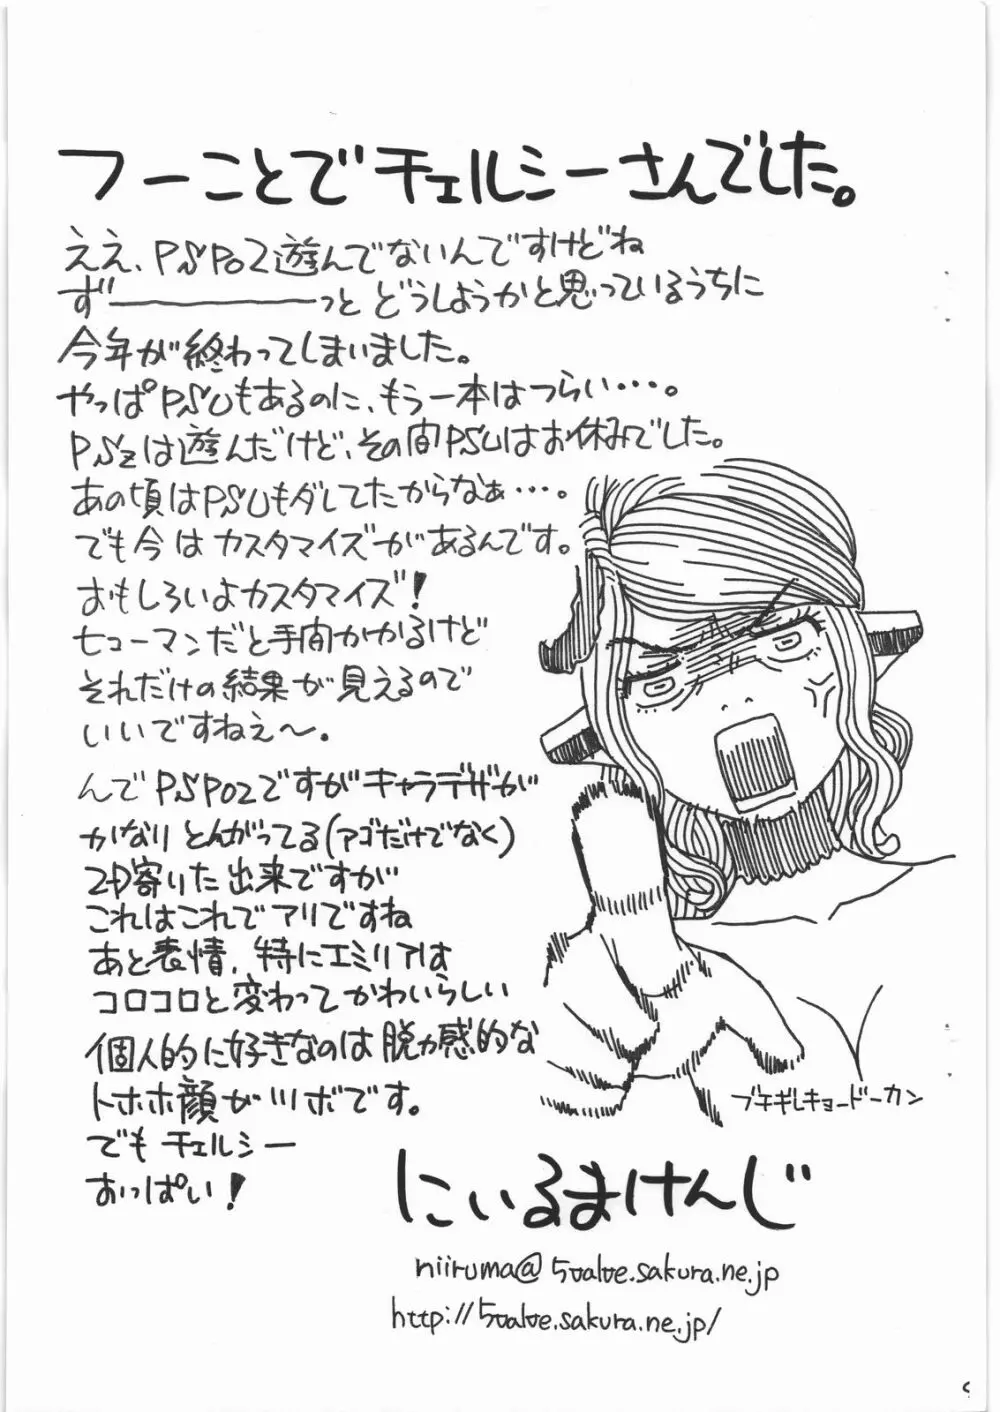 フーことでチェルシーさんでした。
ええ、PSPo2遊んでないんですけどね
ずーーーっと どうしようかと思っているうちに
今年が終わってしまいました。
やっぱPSUもあるのに、もう一本はつらい・・・。
PSZは遊んだけど、その間PSUはお休みでした。
あの頃はPSUもダレてたからなぁ・・・。
でも今はカスタマイズがあるんです。
おもしろいよカスタマイズ!
ヒューマンだと手間かかるけど
それだけの結果が見えるので
いいですねぇ〜。
んでPSPO2ですがキャラデザが
かなりとんがってる(アゴだけでなく)
2D寄りた出来ですが
これはこれでアリですね
あと表情、特にエミリアは
コロコロと変わってかわいらしい
個人的に好きなのは脱力感的な
トホホ顔がツボです。
でもチェルシー
おっぱい!
ブチギレキョードーカン
にいるまけんじ
niiruma@5valve.sakura.ne.jp
http://5valve.sakura.ne.jp/